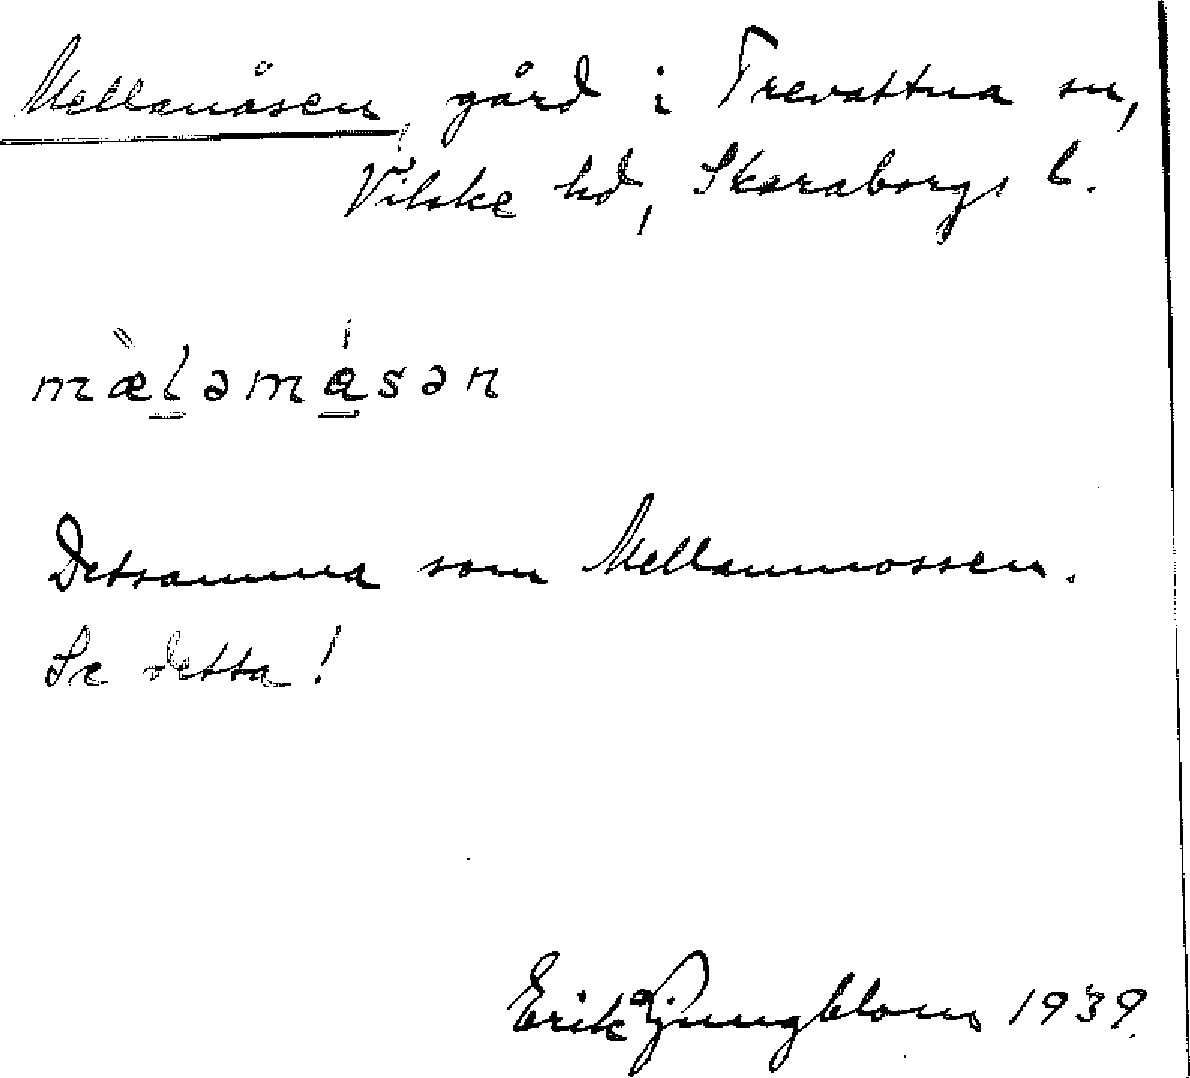 Mellanåsen, gård i Trevattna sn,
Vilske hd, Skaraborgs l.
mæ̀lamásan
Detsamma som Mellanmossen.
Se detta!
Erik Ljungblom 1939.